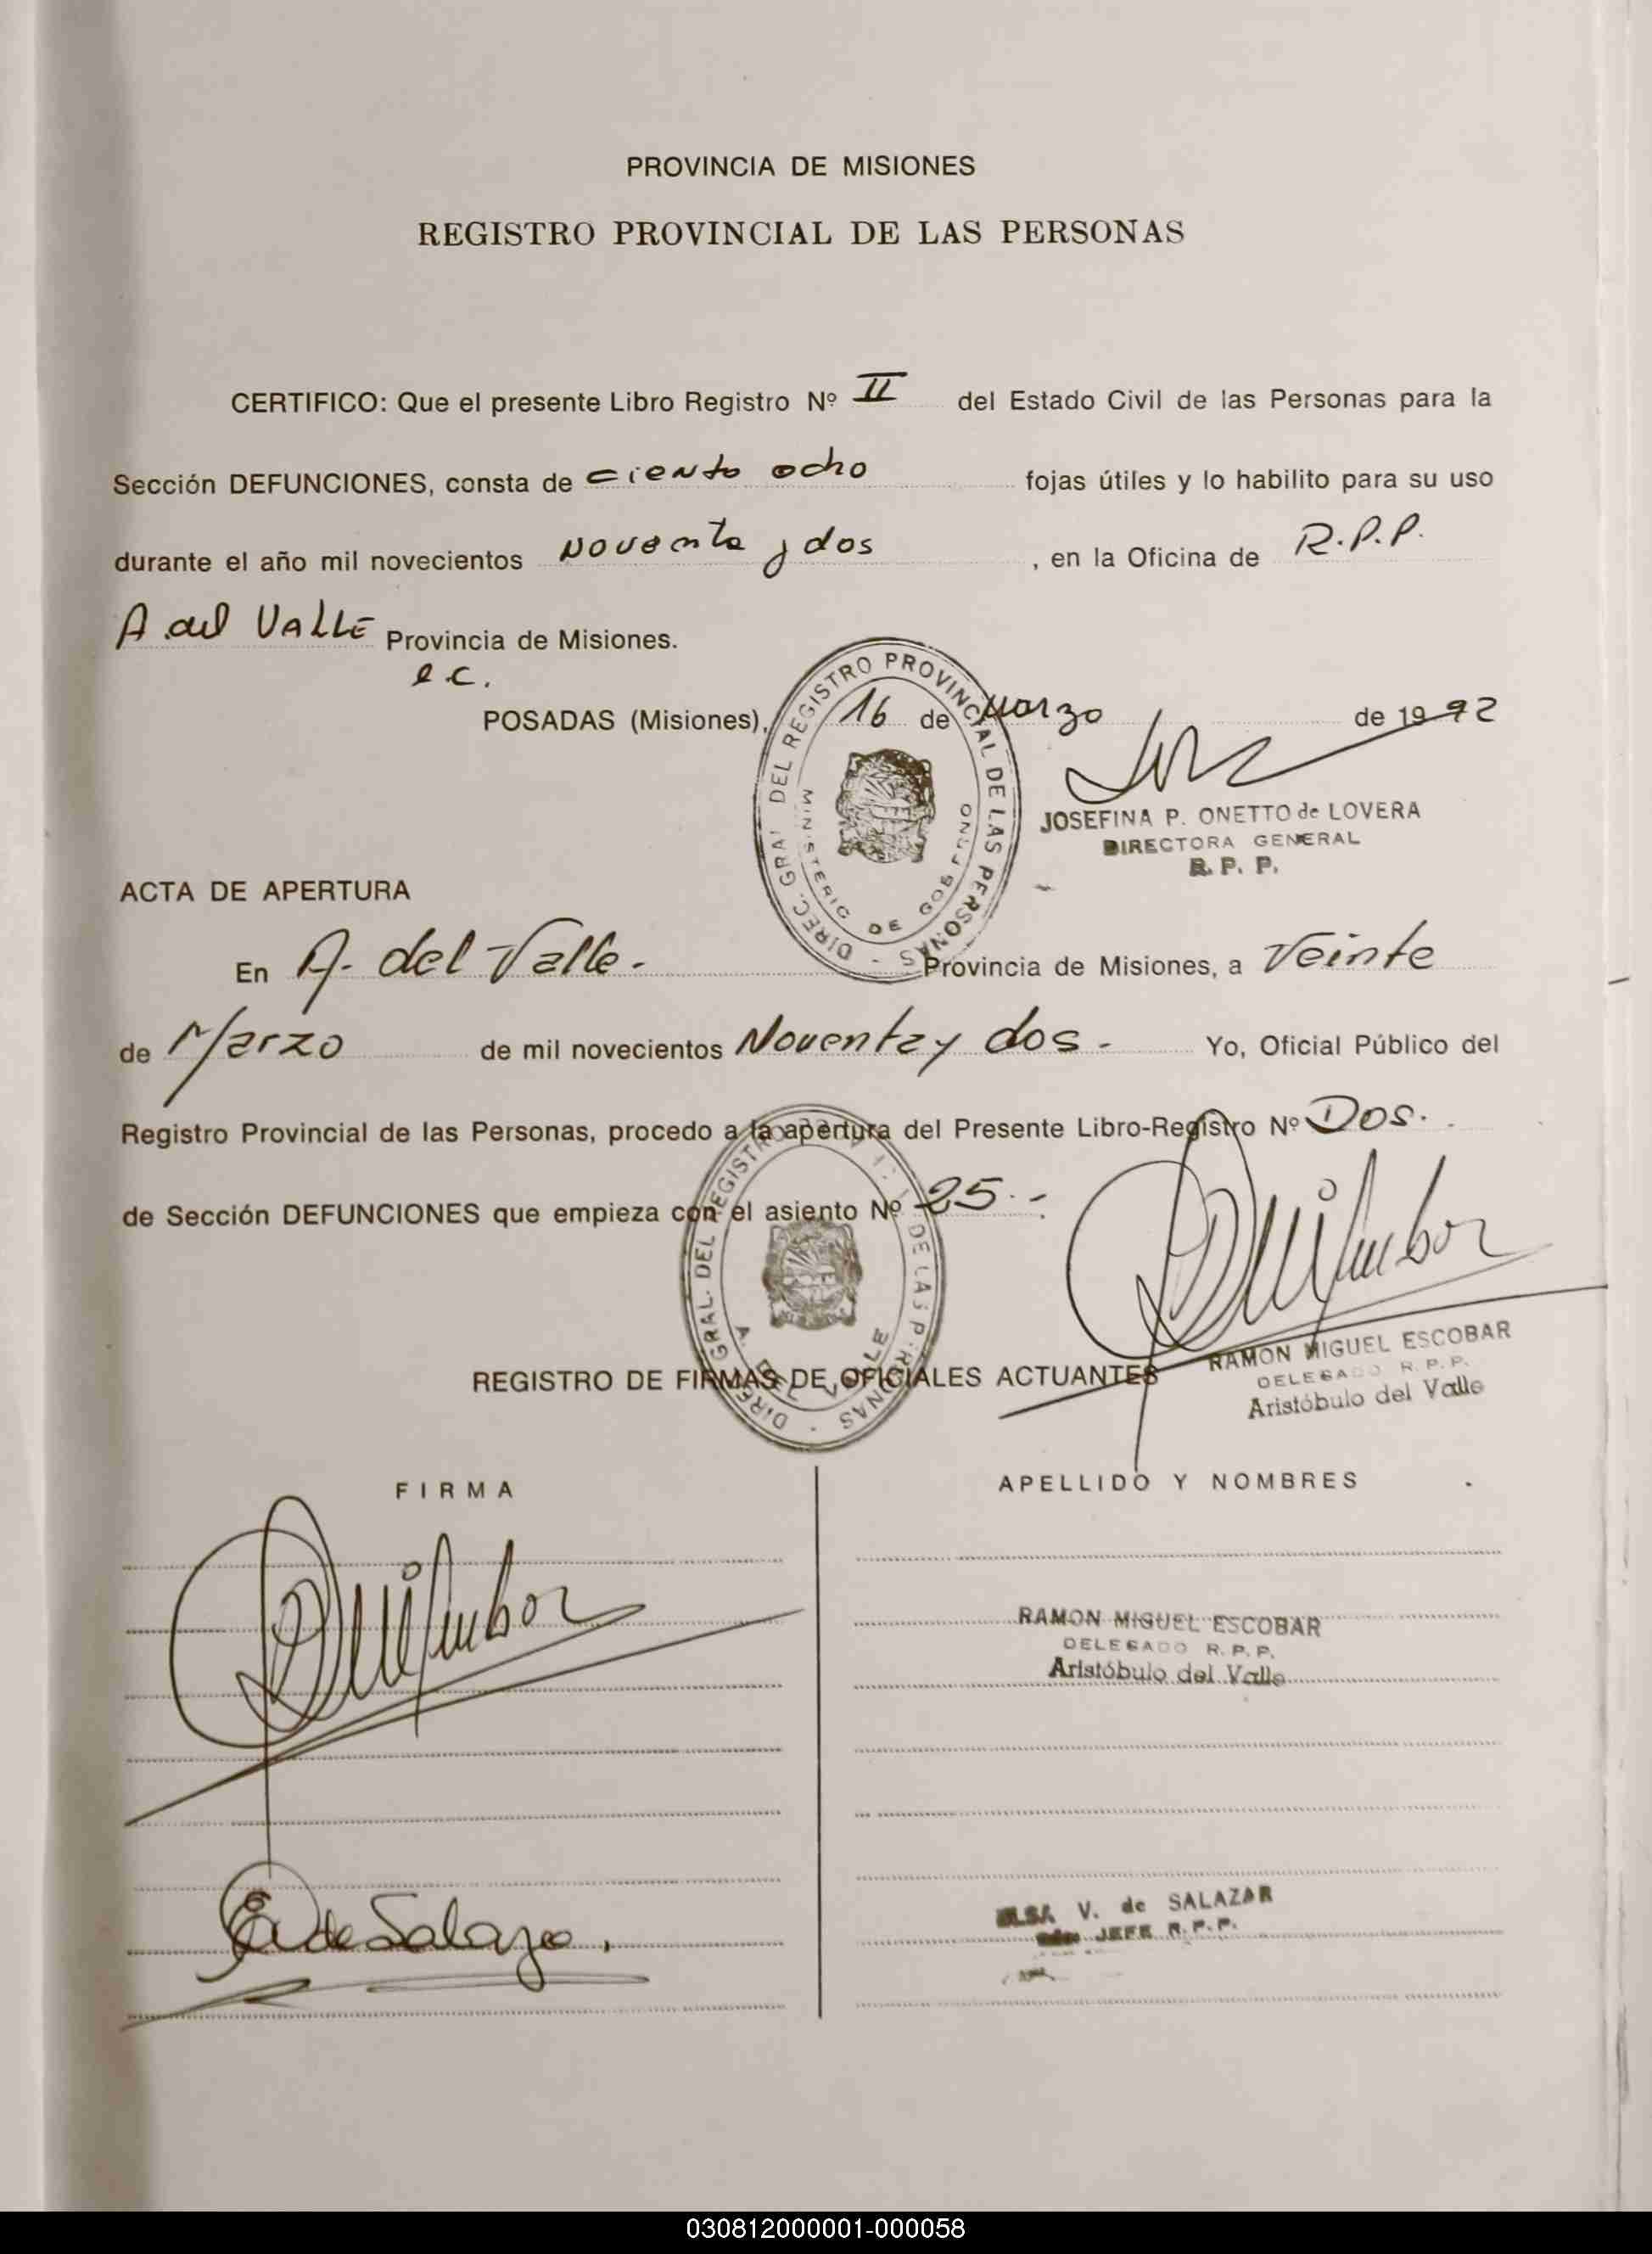 PROVINCIA DE MISIONES
REGISTRO PROVINCIAL DE LAS PERSONAS
CERTIFICO: Que el presente Libro Registro Nº II del Estado Civil de las Personas para la
Sección DEFUNCIONES, consta de ciento ocho fojas útiles y lo habilito para su uso
durante el año mil novecientos noventa y dos, en la Oficina de R.P.P.
A. del VALLE Provincia de Misiones.
e.c.
POSADAS (Misiones), 16 de Marzo de 1992
DIREC. GRAL. DEL REGISTRO PROVINCIAL DE LAS PERSONAS
MINISTERIO DE GOBIERNO
JOSEFINA P. ONETTO de LOVERA
DIRECTORA GENERAL
R. P. P.
ACTA DE APERTURA
En A. del Valle. Provincia de Misiones, a Veinte
de Marzo de mil novecientos Noventa y dos. Yo, Oficial Público del
Registro Provincial de las Personas, procedo a la apertura del Presente Libro-Registro Nº Dos.
de Sección DEFUNCIONES que empieza con el asiento Nº 25.-
DIREC. GRAL. DEL REGISTRO DE LAS PERSONAS
A. DEL VALLE
RAMON MIGUEL ESCOBAR
DELEGADO R.P.P.
Aristóbulo del Valle
REGISTRO DE FIRMAS DE OFICIALES ACTUANTES
FIRMA
APELLIDO Y NOMBRES
RAMON MIGUEL ESCOBAR
DELEGADO R.P.P.
Aristóbulo del Valle
de Salazar.
ELSA V. de SALAZAR
JEFE R.P.P.
030812000001-000058